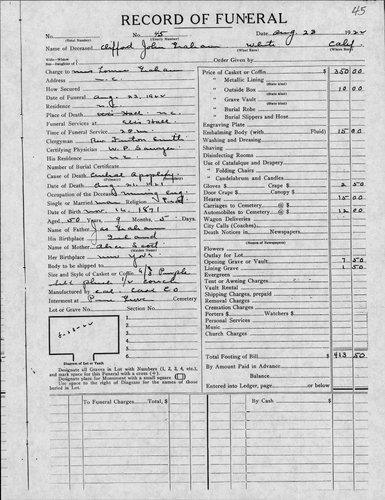 45
RECORD OF FUNERAL
No. 45 Date Aug. 23 1922
(Total Number) (Yearly Number)
Name of Deceased Clifford John Graham White Calif
(What Race) (Where Born)
Charge to Mrs. Graham
Order Given by
Address N.C.
How Secured
Date of Funeral Aug. 23, 1922
Residence N.C.
Place of Death N.C.
Funeral Services at Elks Hall
Time of Funeral Service 2 P.M.
Clergyman Rev. Smith
Certifying Physician W.P. Sawyer
His Residence N.C.
Number of Burial Certificate
Cause of Death Cerebral Apoplexy
Date of Death Aug 21, 1921
Occupation of the Deceased Mining Eng.
Single or Married Religion Prot
Date of Birth Nov. 16, 1871
Aged 50 Years 9 Months 5 Days
Name of Father Jas Graham
His Birthplace Ireland
Name of Mother Alice Scott
(Maiden Name)
Her Birthplace New York
Body to be shipped to
Size and Style of Casket or Coffin 6/3 Purple
Plush 1/2 couch
Manufactured by Cal Cas Co
Interment at Pine Grove Cemetery
Lot or Grave No. Section No.
1
2
3
4
5
6
7
Diagram of Lot or Vault
Designate all Graves in Lot with Numbers (1, 2, 3, 4, etc.), and mark space for this Funeral with a cross (+).
Designate place for Monument with a small square
Use space to the right of Diagram for the names of those buried in Lot.
Price of Casket or Coffin $ 350 00
" Metallic Lining
(State Kind)
" Outside Box 10 00
(State Kind)
" Grave Vault
(State Kind)
" Burial Robe
" Burial Slippers and Hose
Engraving Plate
Embalming Body (with Fluid) 15 00
Washing and Dressing
Shaving
Disinfecting Rooms
Use of Catafalque and Drapery
" Folding Chairs
" Candelabrum and Candles
Gloves $ Crape $ 2 50
Hearse 15 00
Carriages to Cemetery @ $
Automobiles to Cemetery @ $ 12 00
Wagon Deliveries
City Calls (Coaches)
Death Notices in Newspapers
(Names of Newspapers)
Flowers
Outlay for Lot
Opening Grave or Vault 7 50
Lining Grave 1 50
Evergreen
Tent or Awning Charges
Vault Rental
Shipping Charges, prepaid
Removal Charges
Cremation Charges
Porters $ Watchers $
Personal Services
Music
Church Charges
Total Footing of Bill $ 413 50
By Amount Paid in Advance
Balance
Entered into Ledger, page or below
To Funeral Charges, Total, $ By Cash $